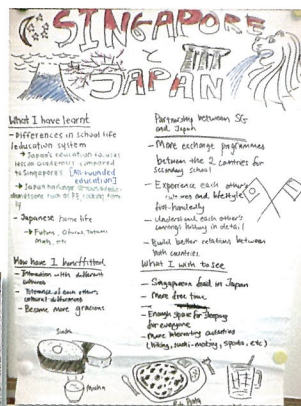 SINGAPORE
と
JAPAN
What I have learnt
- Differences in school life
/education system
→ Japan's education focuses
less academically compared
to Singapore's [All-rounded
education]
- Japanese home life
→ Futon, Ofuro, Tatami
Mats, etc
How have I benefitted
- Interaction with different
cultures
- Tolerance of each others
cultural differences
- Become more gracious
Partnership between SG
and Japan
- More exchange programmes
between the 2 countries for
secondary school
- Experience each other's
cultures and lifestyle
first-handedly
- Understand each other's
history in detail
- Build better relations between
both countries
What I wish to see
- Singaporean food in Japan
- More free time
- Enough space for sleeping
for everyone
- More interesting activities
(hiking, sushi-making, sports, etc)
Sushi
Matcha